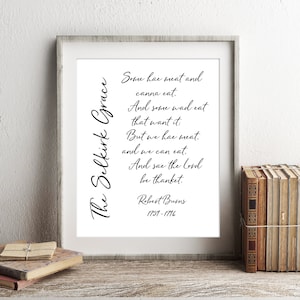 The Selkirk Grace
Some hae meat and
canna eat,
And some wad eat
that want it.
But we hae meat,
and we can eat,
And sae the Lord
be thanket.
Robert Burns
1759 - 1796